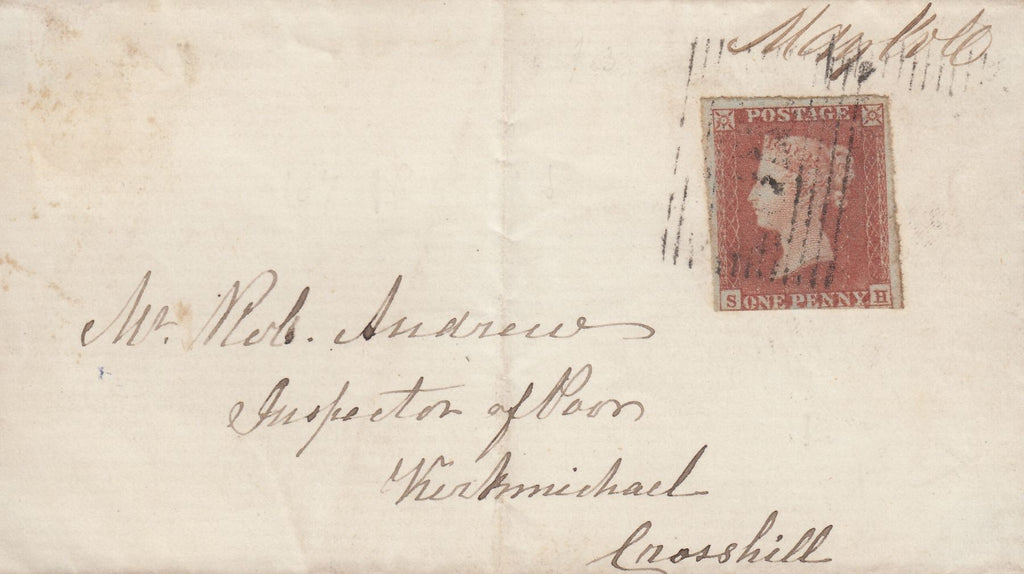 Maybole
POSTAGE
S ONE PENNY H
Mr. Rob. Andrew
Inspector of Poor
Kirkmichael
Crosshill